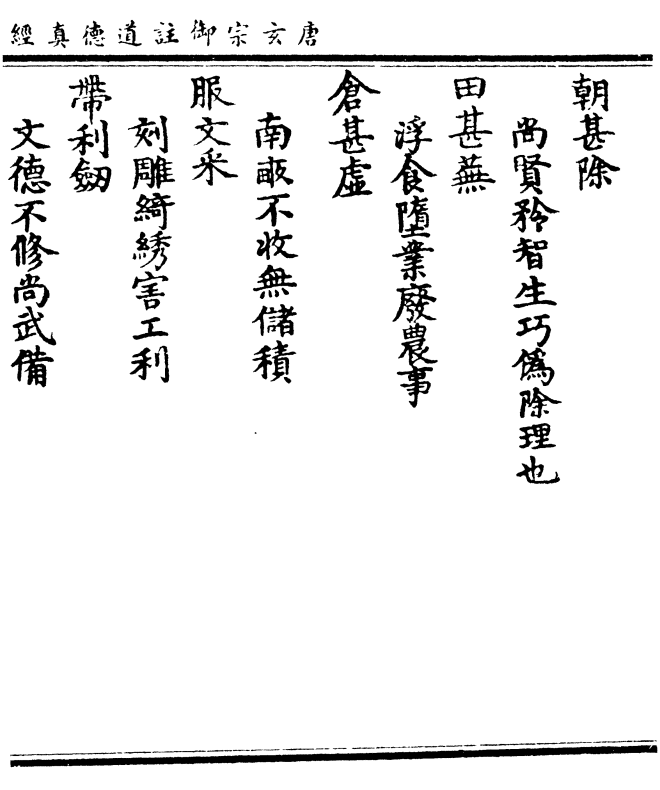 唐玄宗御註道德真經
朝甚除
尚賢矜智生巧僞除理也
田甚蕪
浮食墮業廢農事
倉甚虛
南畝不收無儲積
服文采
刻雕綺綉害工利
帶利劔
文德不修尚武備